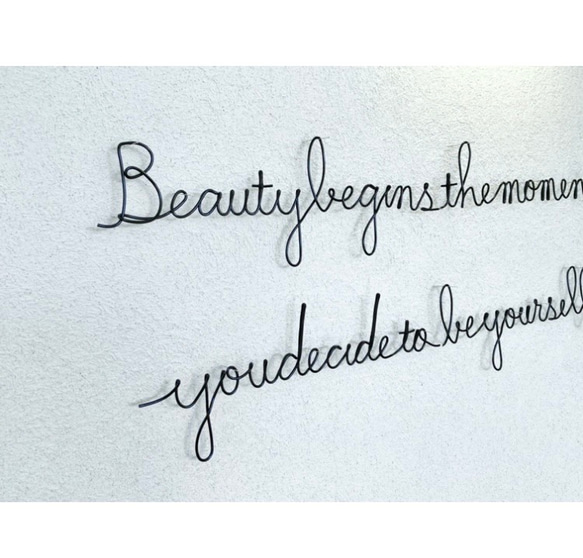 Beauty begins the momen
you decide to be yoursel